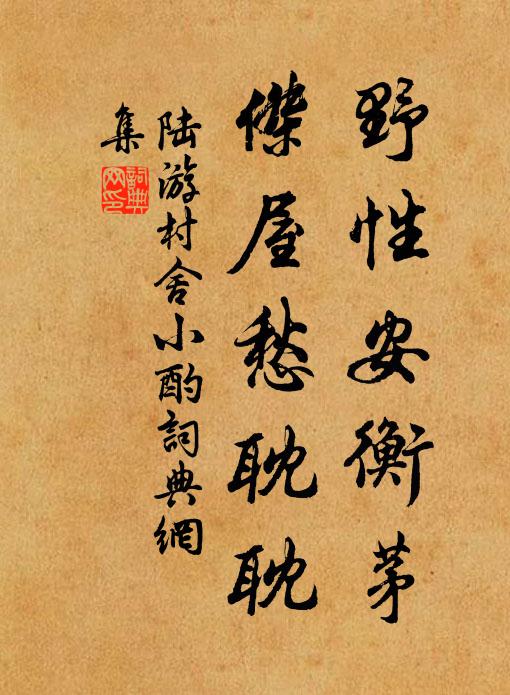 野性安衡茅
傑屋愁耽耽
陆游村舍小酌詞典網
集
詞典
网印